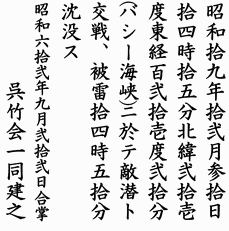 昭和拾九年拾弐月参拾日
拾四時拾五分北緯弐拾壱
度東経百弐拾壱度弐拾分
(バシー海峡)ニ於テ敵潜ト
交戦、被雷拾四時五拾分
沈没ス
昭和六拾弐年九月弐拾弐日合掌
呉竹会一同建之